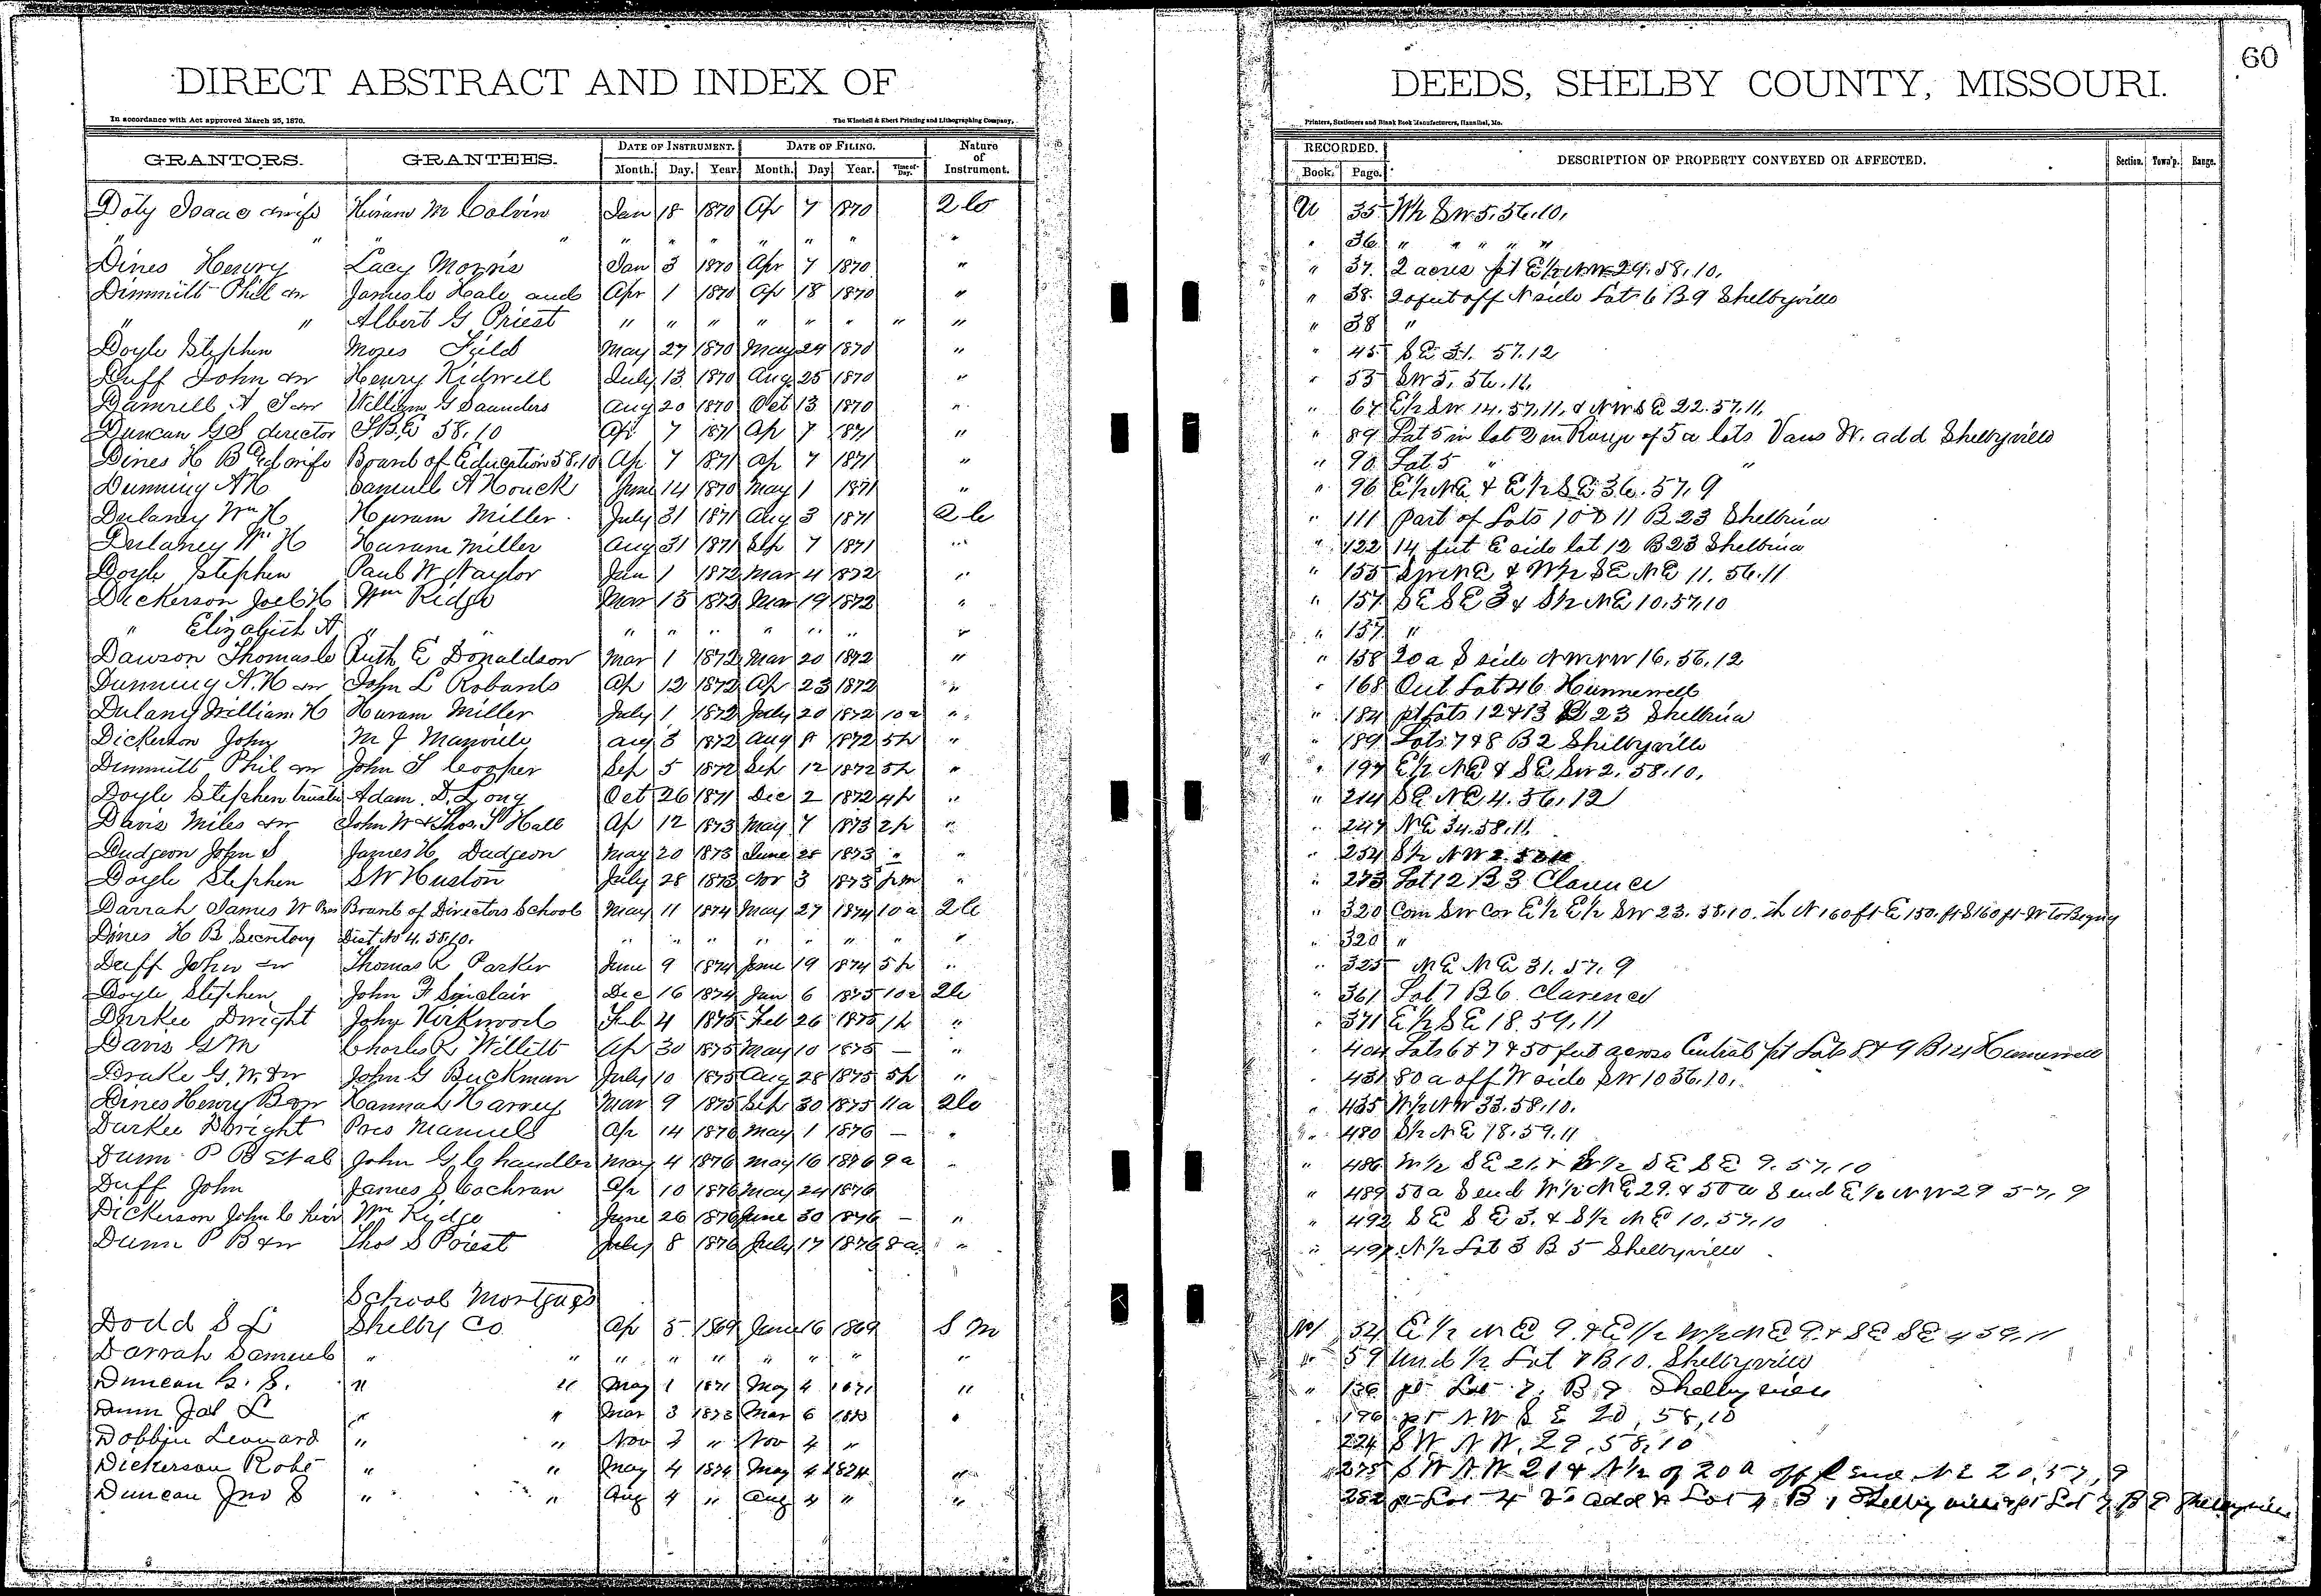 60
DIRECT ABSTRACT AND INDEX OF DEEDS, SHELBY COUNTY, MISSOURI.
In accordance with Act approved March 25, 1870. The Winchell & Ebert Printing and Lithographing Company, Printers, Stationers and Blank Book Manufacturers, Hannibal, Mo.
GRANTORS. GRANTEES. DATE OF INSTRUMENT. DATE OF FILING. Nature of Instrument. RECORDED. DESCRIPTION OF PROPERTY CONVEYED OR AFFECTED. Section. Town'p. Range.
Month. Day. Year. Month. Day Year. Time of Day. Book. Page.
Doty Isaac & wife Hiram M Colvin Jan 18 1870 Ap 7 1870 35 W½ SW 5.56.10.
" " " " " " " " " " " " 36 " " " " "
Dines Henry Lacy Morris Jan 3 1870 Apr 7 1870 " " 37. 2 acres pt E½ NW 29.58.10.
Dimmitt Phill & w James C Hale and Apr 1 1870 Ap 18 1870 " " 38. 20 feet off N side Lot 6 B 9 Shelbyville
" " Albert G Priest " " " " " " " " " 38 "
Doyle Stephen Moses Field May 27 1870 May 29 1870 " " 45 SE 31. 57.12
Duff John & w Henry Kidwell July 13 1870 Aug 25 1870 " " 53 SW 5. 56.11.
Damrell A S & w William G Saunders Aug 20 1870 Oct 13 1870 " " 67 E½ SW 14.57.11. & NW SE 22.57.11.
Duncan G S director S.B.E 58.10 Ap 7 1871 Ap 7 1871 " " 89 Lot 5 in lot 2 in Range of 5 a lots Vans W. add Shelbyville
Dines H B Ed wife Board of Education 58.10 Ap 7 1871 Ap 7 1871 " " 90 Lot 5 " "
Dunning A H Samuel A Houck June 14 1870 May 1 1871 " " 96 E½ NE & E½ SE 36.57.9
Dulaney Wm H Hiram Miller. July 31 1871 Aug 3 1871 " 111 Part of Lots 10 & 11 B 23 Shelbina
Dulaney Wm H Huram Miller Aug 31 1871 Sep 7 1871 " " 122 14 feet E side lot 12 B 23 Shelbina
Doyle Stephen Paul W Naylor Jan 1 1872 Mar 4 1872 " " 155 & W½ SE NE 11.56.11
Dickerson Joel H Wm Ridge Mar 15 1872 Mar 19 1872 " " 157. SE SE 3 & S½ NE 10.57.10
" Elizabeth A " " " " " " " " " " 157. "
Dawson Thomas C Ruth E Donaldson Mar 1 1872 Mar 20 1872 " " 158 20 a S side NW NW 16.56.12
Dunning A.H & w John L Robards Ap 12 1872 Ap 23 1872 " " 168 Out Lot 46 Hunnewell
Dulany William H Huram Miller July 1 1872 July 20 1872 10a " " 184 pt Lots 12 & 13 B 23 Shelbina
Dickerson John M J Manville Aug 3 1872 Aug 8 1872 5p " " 189 Lots 7 & 8 B 2 Shelbyville
Dimmitt Phil & w John S Cooper Sep 5 1872 Sep 12 1872 5p " " 197 E½ NE & SE SW 2.58.10.
Doyle Stephen trustee Adam D. Long Oct 26 1871 Dec 2 1872 4p " " 214 SE NE 4.56.12
Davis Miles & w John W & Thos. S Hall Ap 12 1873 May 7 1873 2p " " 247 NE 34.58.11.
Dudgeon John S James H. Dudgeon May 20 1873 June 28 1873 " " " 254 S½ NW 2.
Doyle Stephen S W Huston July 28 1873 Nov 3 1873 pm " " 273 Lot 12 B 3 Clarence
Darrah James W Pres Board of Directors School May 11 1874 May 27 1874 10a " 320 Com SW Cor E½ E½ SW 23.58.10. th N 160 ft E 150. ft S 160 ft W to Begng
Dines H B Secretary Dist No 4. 58.10. " " " " " " " " " 320 "
Duff John & w Thomas R Parker June 9 1874 June 19 1874 5p " " 325 NE NE 31.57.9
Doyle Stephen John F Sinclair Dec 16 1874 Jan 6 1875 10a " 361 Lot 7 B 6. Clarence
Durkee Dwight John Kirkwood Feb 4 1875 Feb 26 1875 1p " " 371 E½ SE 18.59.11
Davis G M Charles R Willett Ap 30 1875 May 10 1875 — " " 404 Lots 6 & 7 & 50 feet across Central pt Lots 8 & 9 B 14 Hunnewell
Drake G.W. & w John G Buckman July 10 1875 Aug 28 1875 5p " " 431 80 a off W side SW 10 56.10.
Dines Henry B & w Hannah Harvey Mar 9 1875 Sep 30 1875 11a " 435 W½ NW 33.58.10.
Durkee Dwight Pres Manuels Ap 14 1876 May 1 1876 — " " 480 S½ NE 18.59.11
Dunn P B et al John G Chandler May 4 1876 May 16 1876 9a " " 486 SE 21. & SE SE 9.57.10
Duff John James S Cochran Ap 10 1876 May 24 1876 " 489 50 a S end W½ NE 29. & 50 a S end E½ NW 29 57.9
Dickerson John C heir Wm Ridge June 26 1876 June 30 1876 — " " 492 SE SE 3. & S½ NE 10.57.10
Dunn P B & w Thos S Priest July 8 1876 July 17 1876 8a " " 497 N½ Lot 3 B 5 Shelbyville
School Mortgages
Dodd S L Shelby Co Ap 5 1869 June 16 1869 S M No 1 54 E½ NE 9. & E½ W½ NE 9. & SE SE 4 59.11
Darrah Samuel " " " " " " " " " " 59 Und ½ Lot 8 B 10. Shelbyville
Duncan G. S. " " May 1 1871 May 4 1871 " " 136 pt Lot 7. B 9 Shelbyville
Dunn Jas L " " Mar 3 1873 Mar 6 1873 " 196 pt N.W S E 20, 58, 10
Dobbin Leonard " " Nov 3 " Nov 4 " 224 S W N W. 29. 58, 10
Dickerson Robt " " May 4 1874 May 4 1874 " " 275 S W N.W 21 & N½ of 20 a off end N E 20, 57, 9
Duncan Jno S " " Aug 4 " Aug 4 " " 282 pt Lot 4 add Lot 4 B 1 Shelbyville & pt Lot 7 B 9 Shelbyville